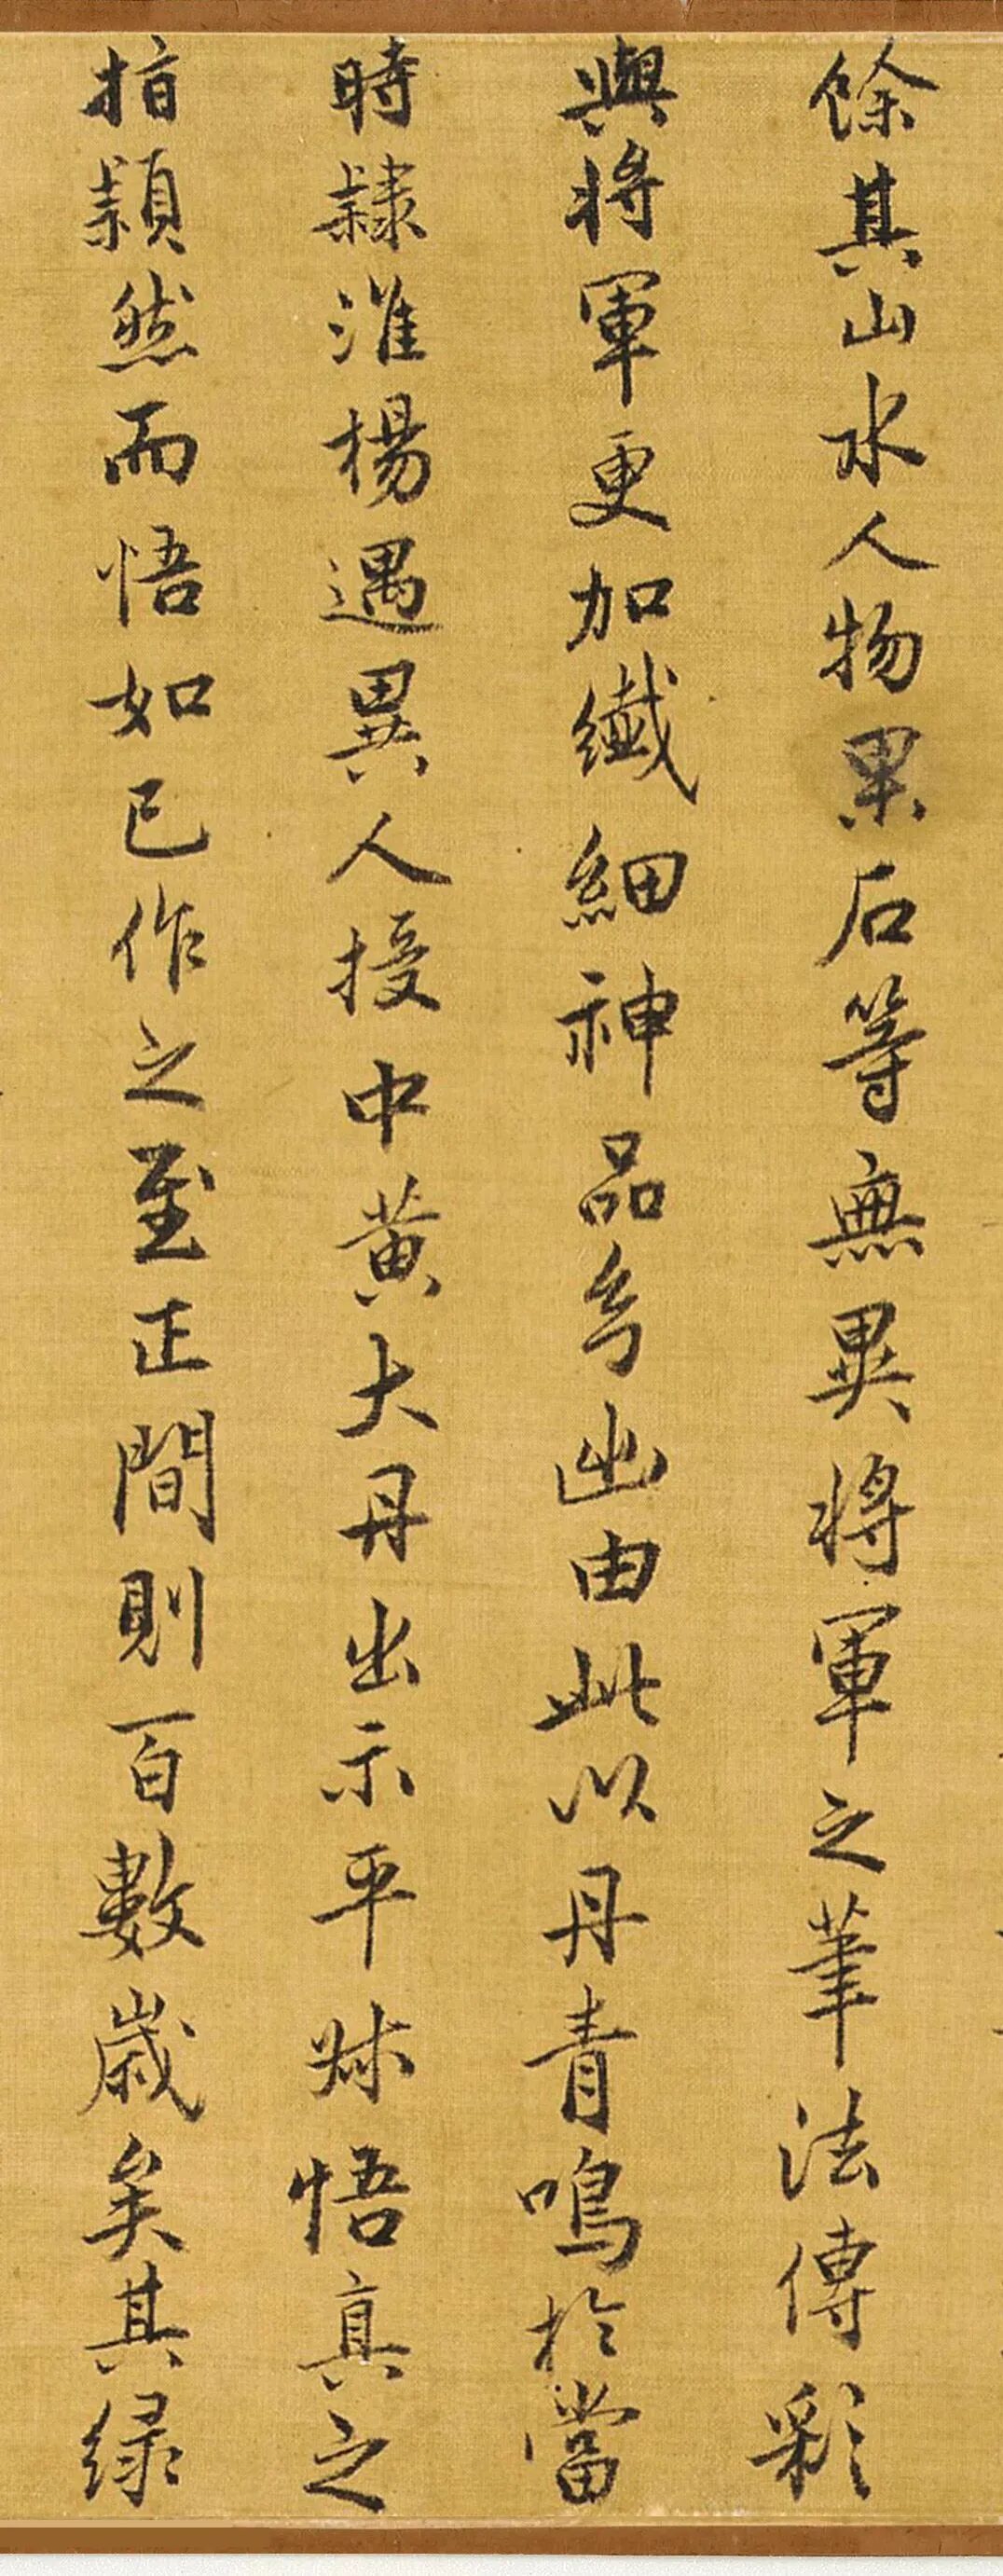 餘其山水人物果石等無異將軍之筆法傳彩
與將軍更加纖細神品幽由此以丹青鳴於當
時隸淮楊遇異人授中黃大丹出示平叔悟真之
指穎然而悟如已作之至正間則百數歲矣其綠